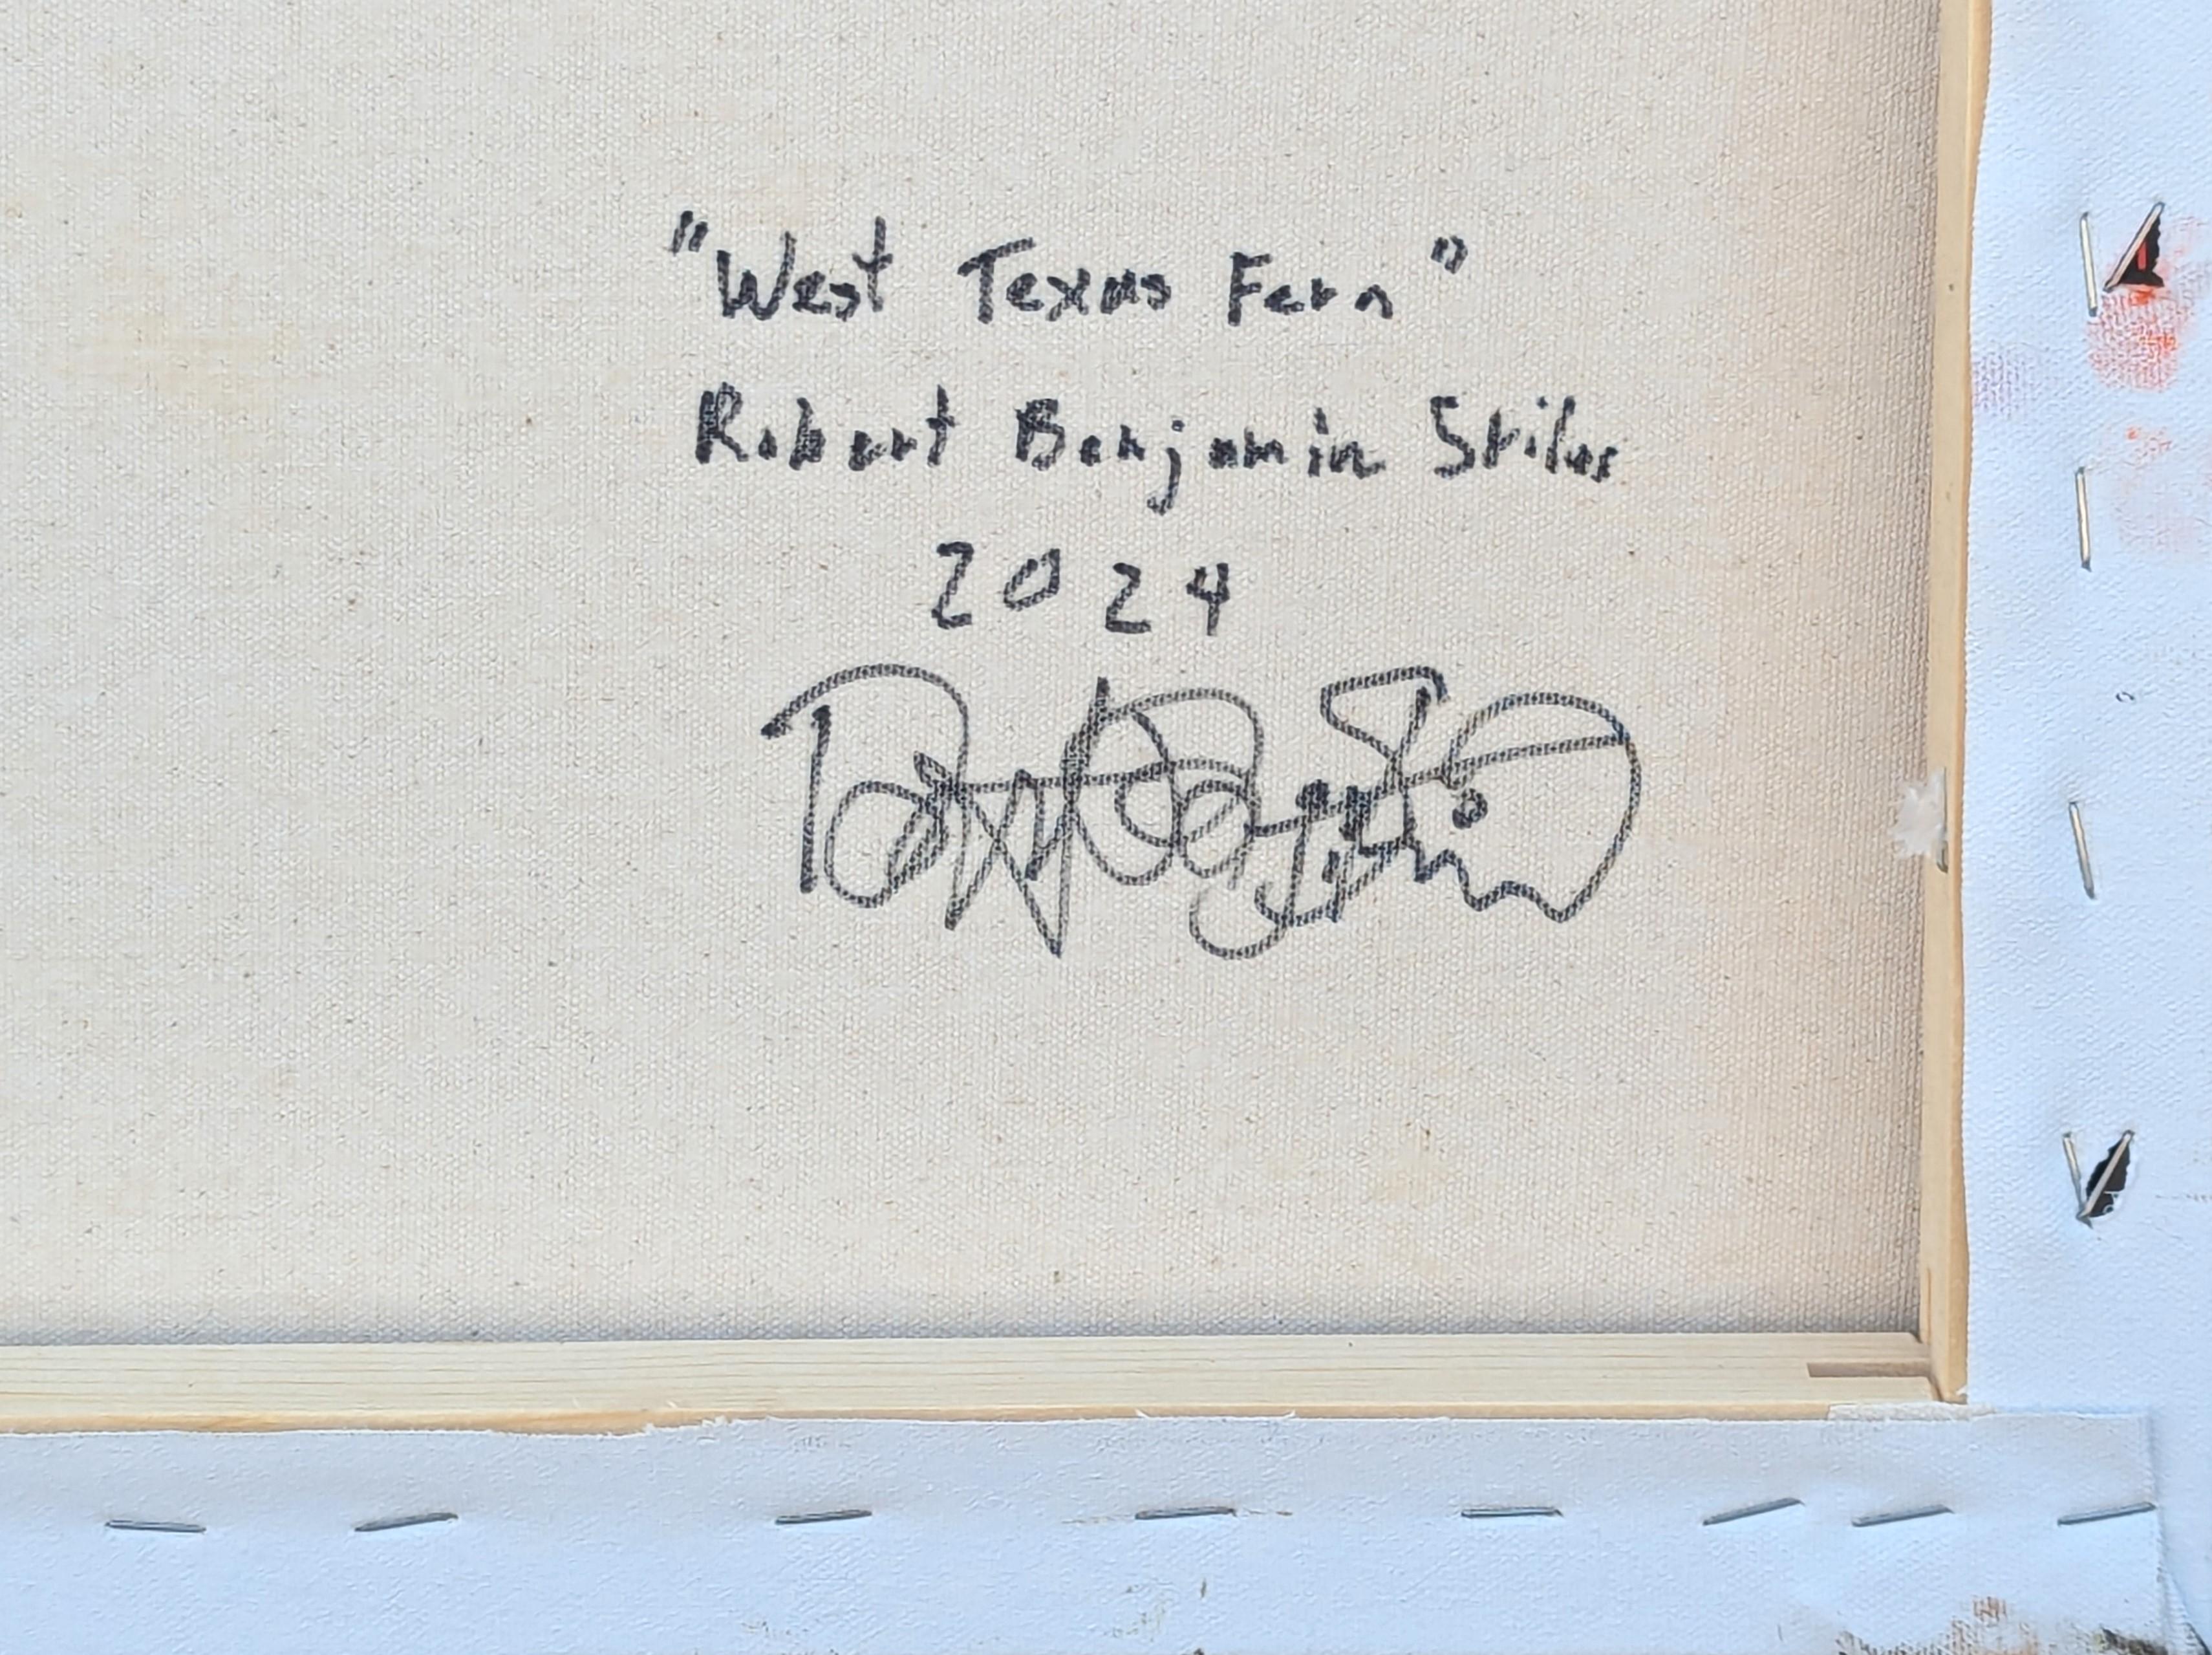 "West Texas Fern"
Robert Benjamin Stiles
2024